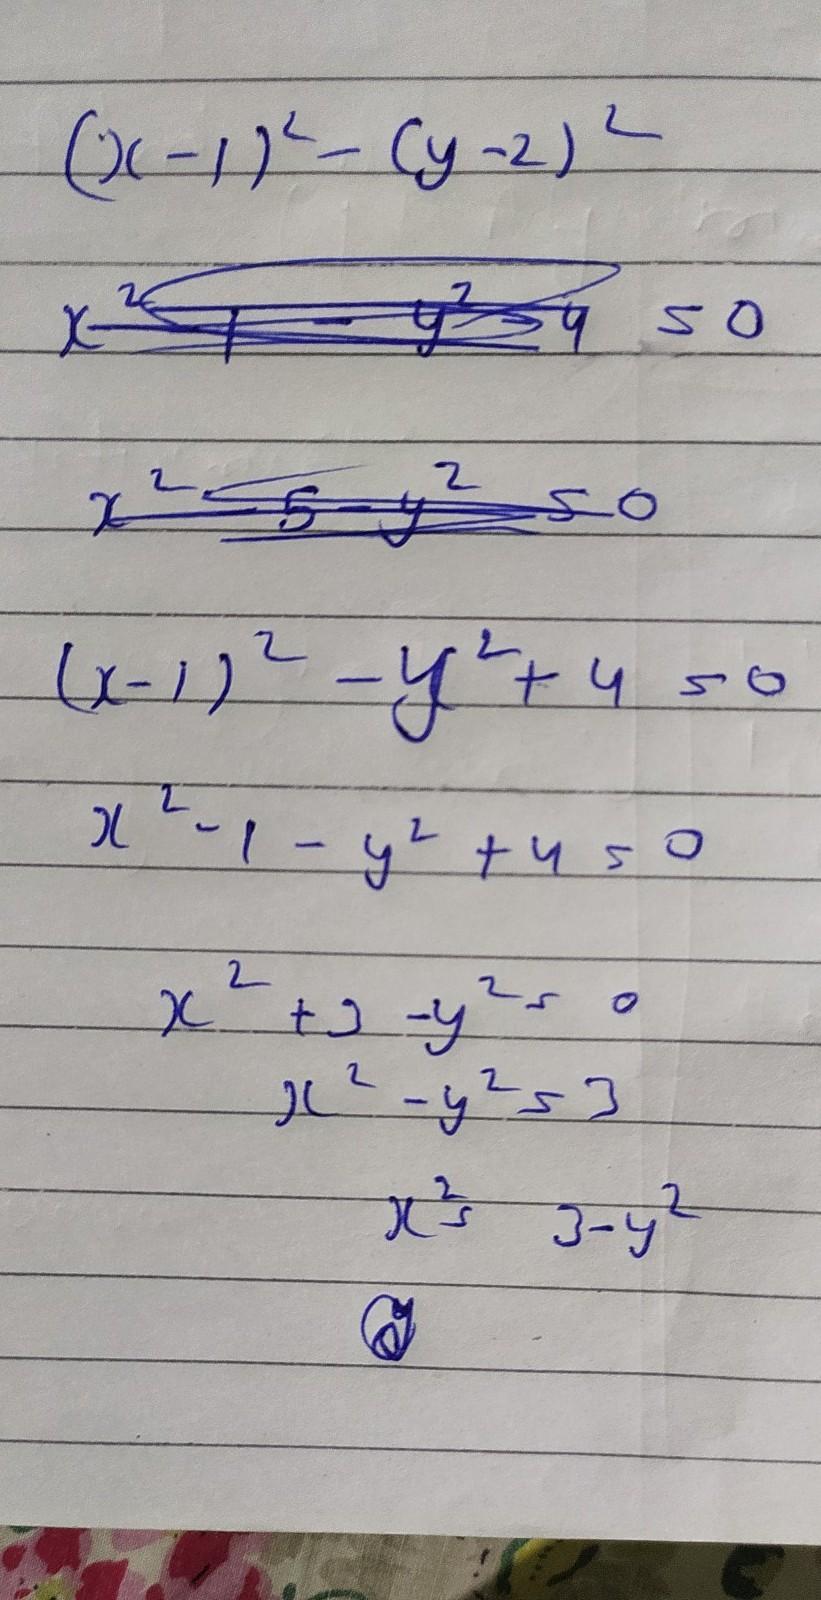 (x-1)² - (y-2)²
x² - 1 - y² - 4 = 0
x² - 5 - y² = 0
(x-1)² - y² + 4 = 0
x² - 1 - y² + 4 = 0
x² + 3 - y² = 0
x² - y² = 3
x² = 3 - y²